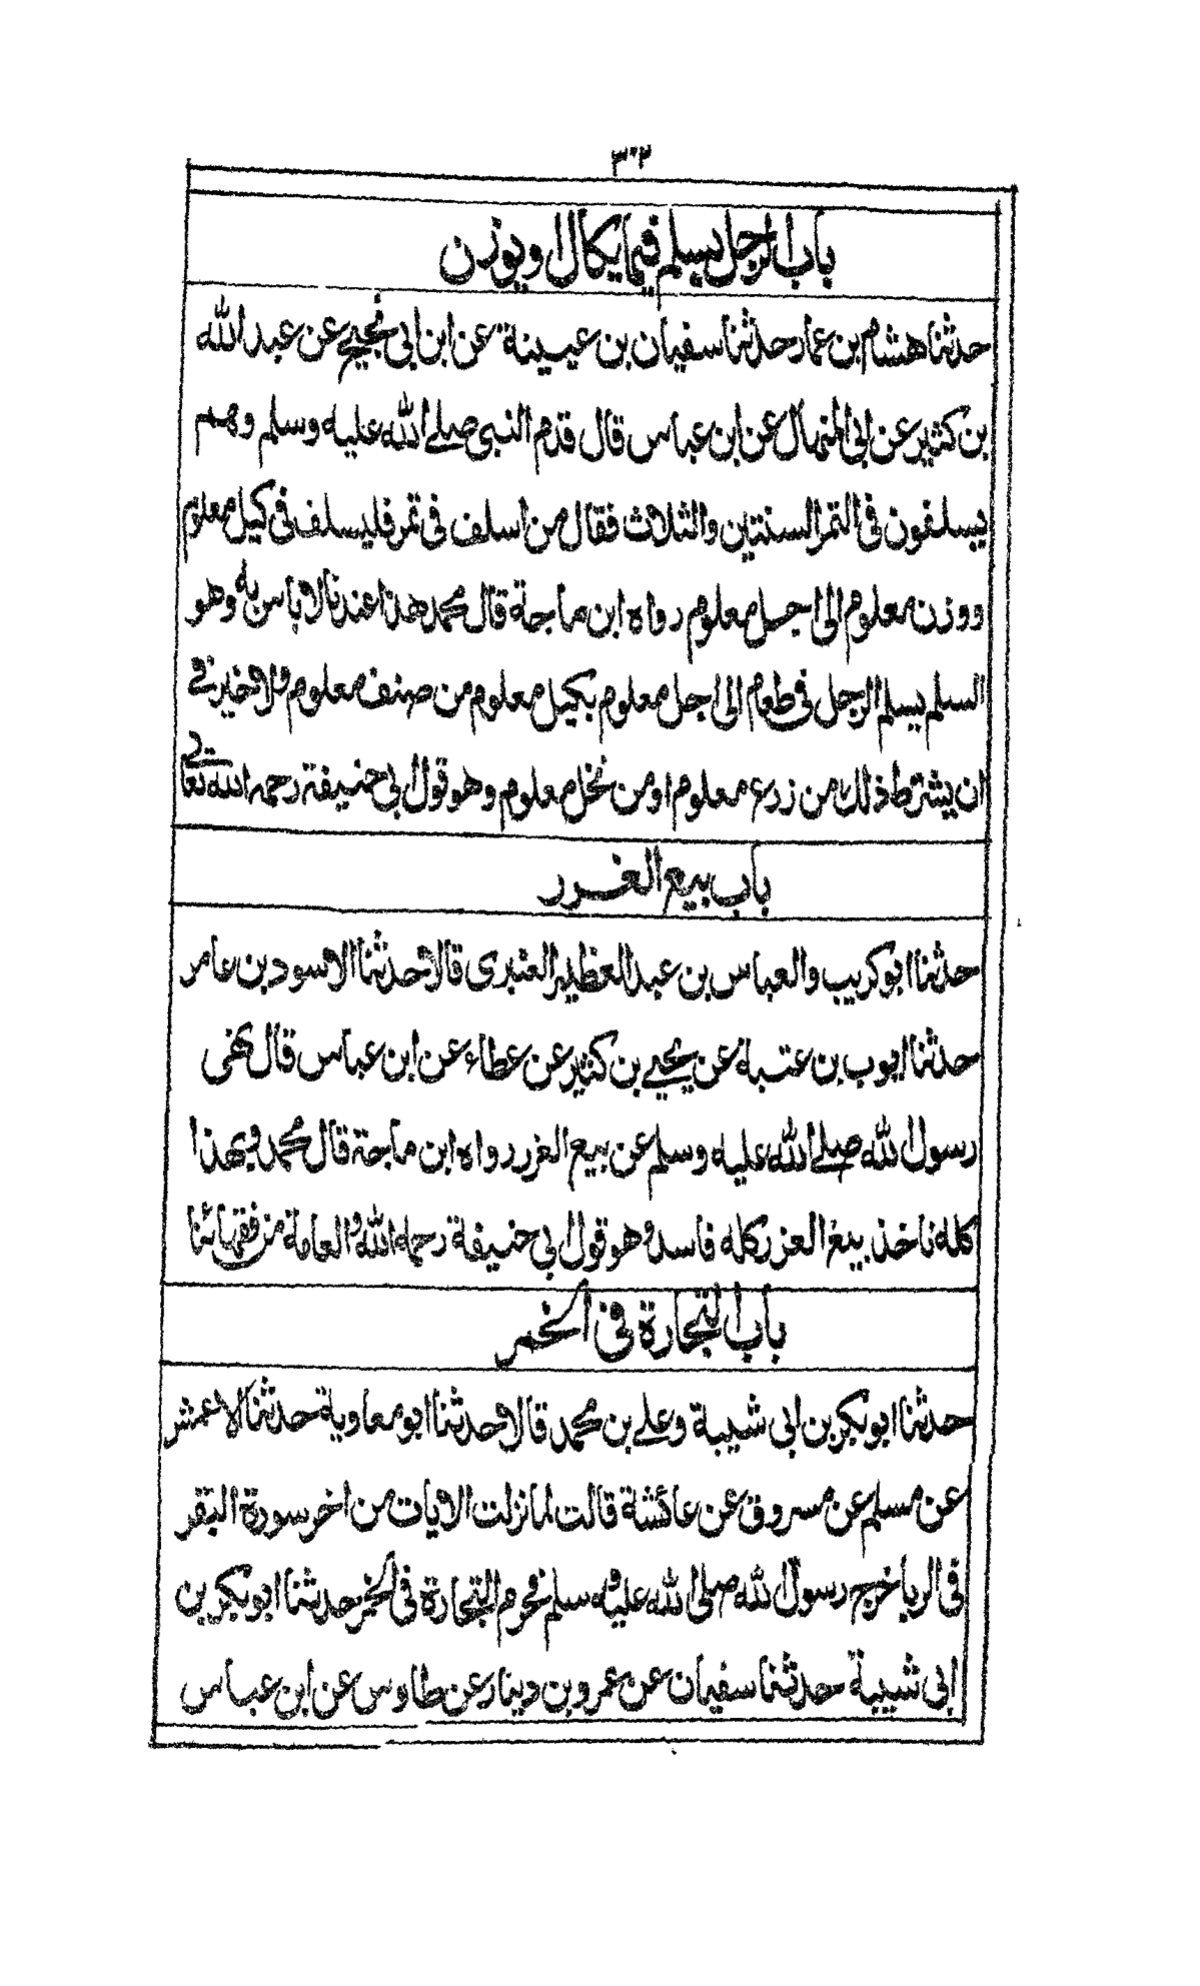 ٣٠٢
باب الرجل يسلم فيما يكال ويوزن
حدثنا هشام بن عمار حدثنا سفيان بن عيينة عن ابن ابي نجيح عن عبد الله
بن كثير عن ابي المنهال عن ابن عباس قال قدم النبي صلے الله عليه وسلم وهم
يسلفون في التمر السنتين والثلاث فقال من اسلف في تمر فليسلف في كيل معلوم
ووزن معلوم الى اجل معلوم رواه ابن ماجة قال محمد هذا عندنا لا باس به وهو
السلم يسلم الرجل في طعام الى اجل معلوم بكيل معلوم من صنف معلوم ولا خير في
ان يشترط ذلك من زرع معلوم او من نخل معلوم وهو قول ابي حنيفة رحمه الله تعالى
باب بيع الغرر
حدثنا ابو كريب والعباس بن عبد العظيم العنبرى قالا حدثنا الاسود بن عامر
حدثنا ايوب بن عتبة عن يحيے بن كثير عن عطاء عن ابن عباس قال نهى
رسول الله صلے الله عليه وسلم عن بيع الغرر رواه ابن ماجة قال محمد وبهذا
كله ناخذ بيع الغرر كله فاسد وهو قول ابي حنيفة رحمه الله والعامة من فقهائنا
باب التجارة في الخمر
حدثنا ابو بكر بن ابي شيبة وعلے بن محمد قالا حدثنا ابو معاوية حدثنا الاعمش
عن مسلم عن مسروق عن عائشة قالت لما نزلت الايات من اخر سورة البقر
في الربا خرج رسول الله صلى الله عليه وسلم فحرم التجارة في الخمر حدثنا ابو بكر بن
ابي شيبة حدثنا سفيان عن عمرو بن دينار عن طاوس عن ابن عباس